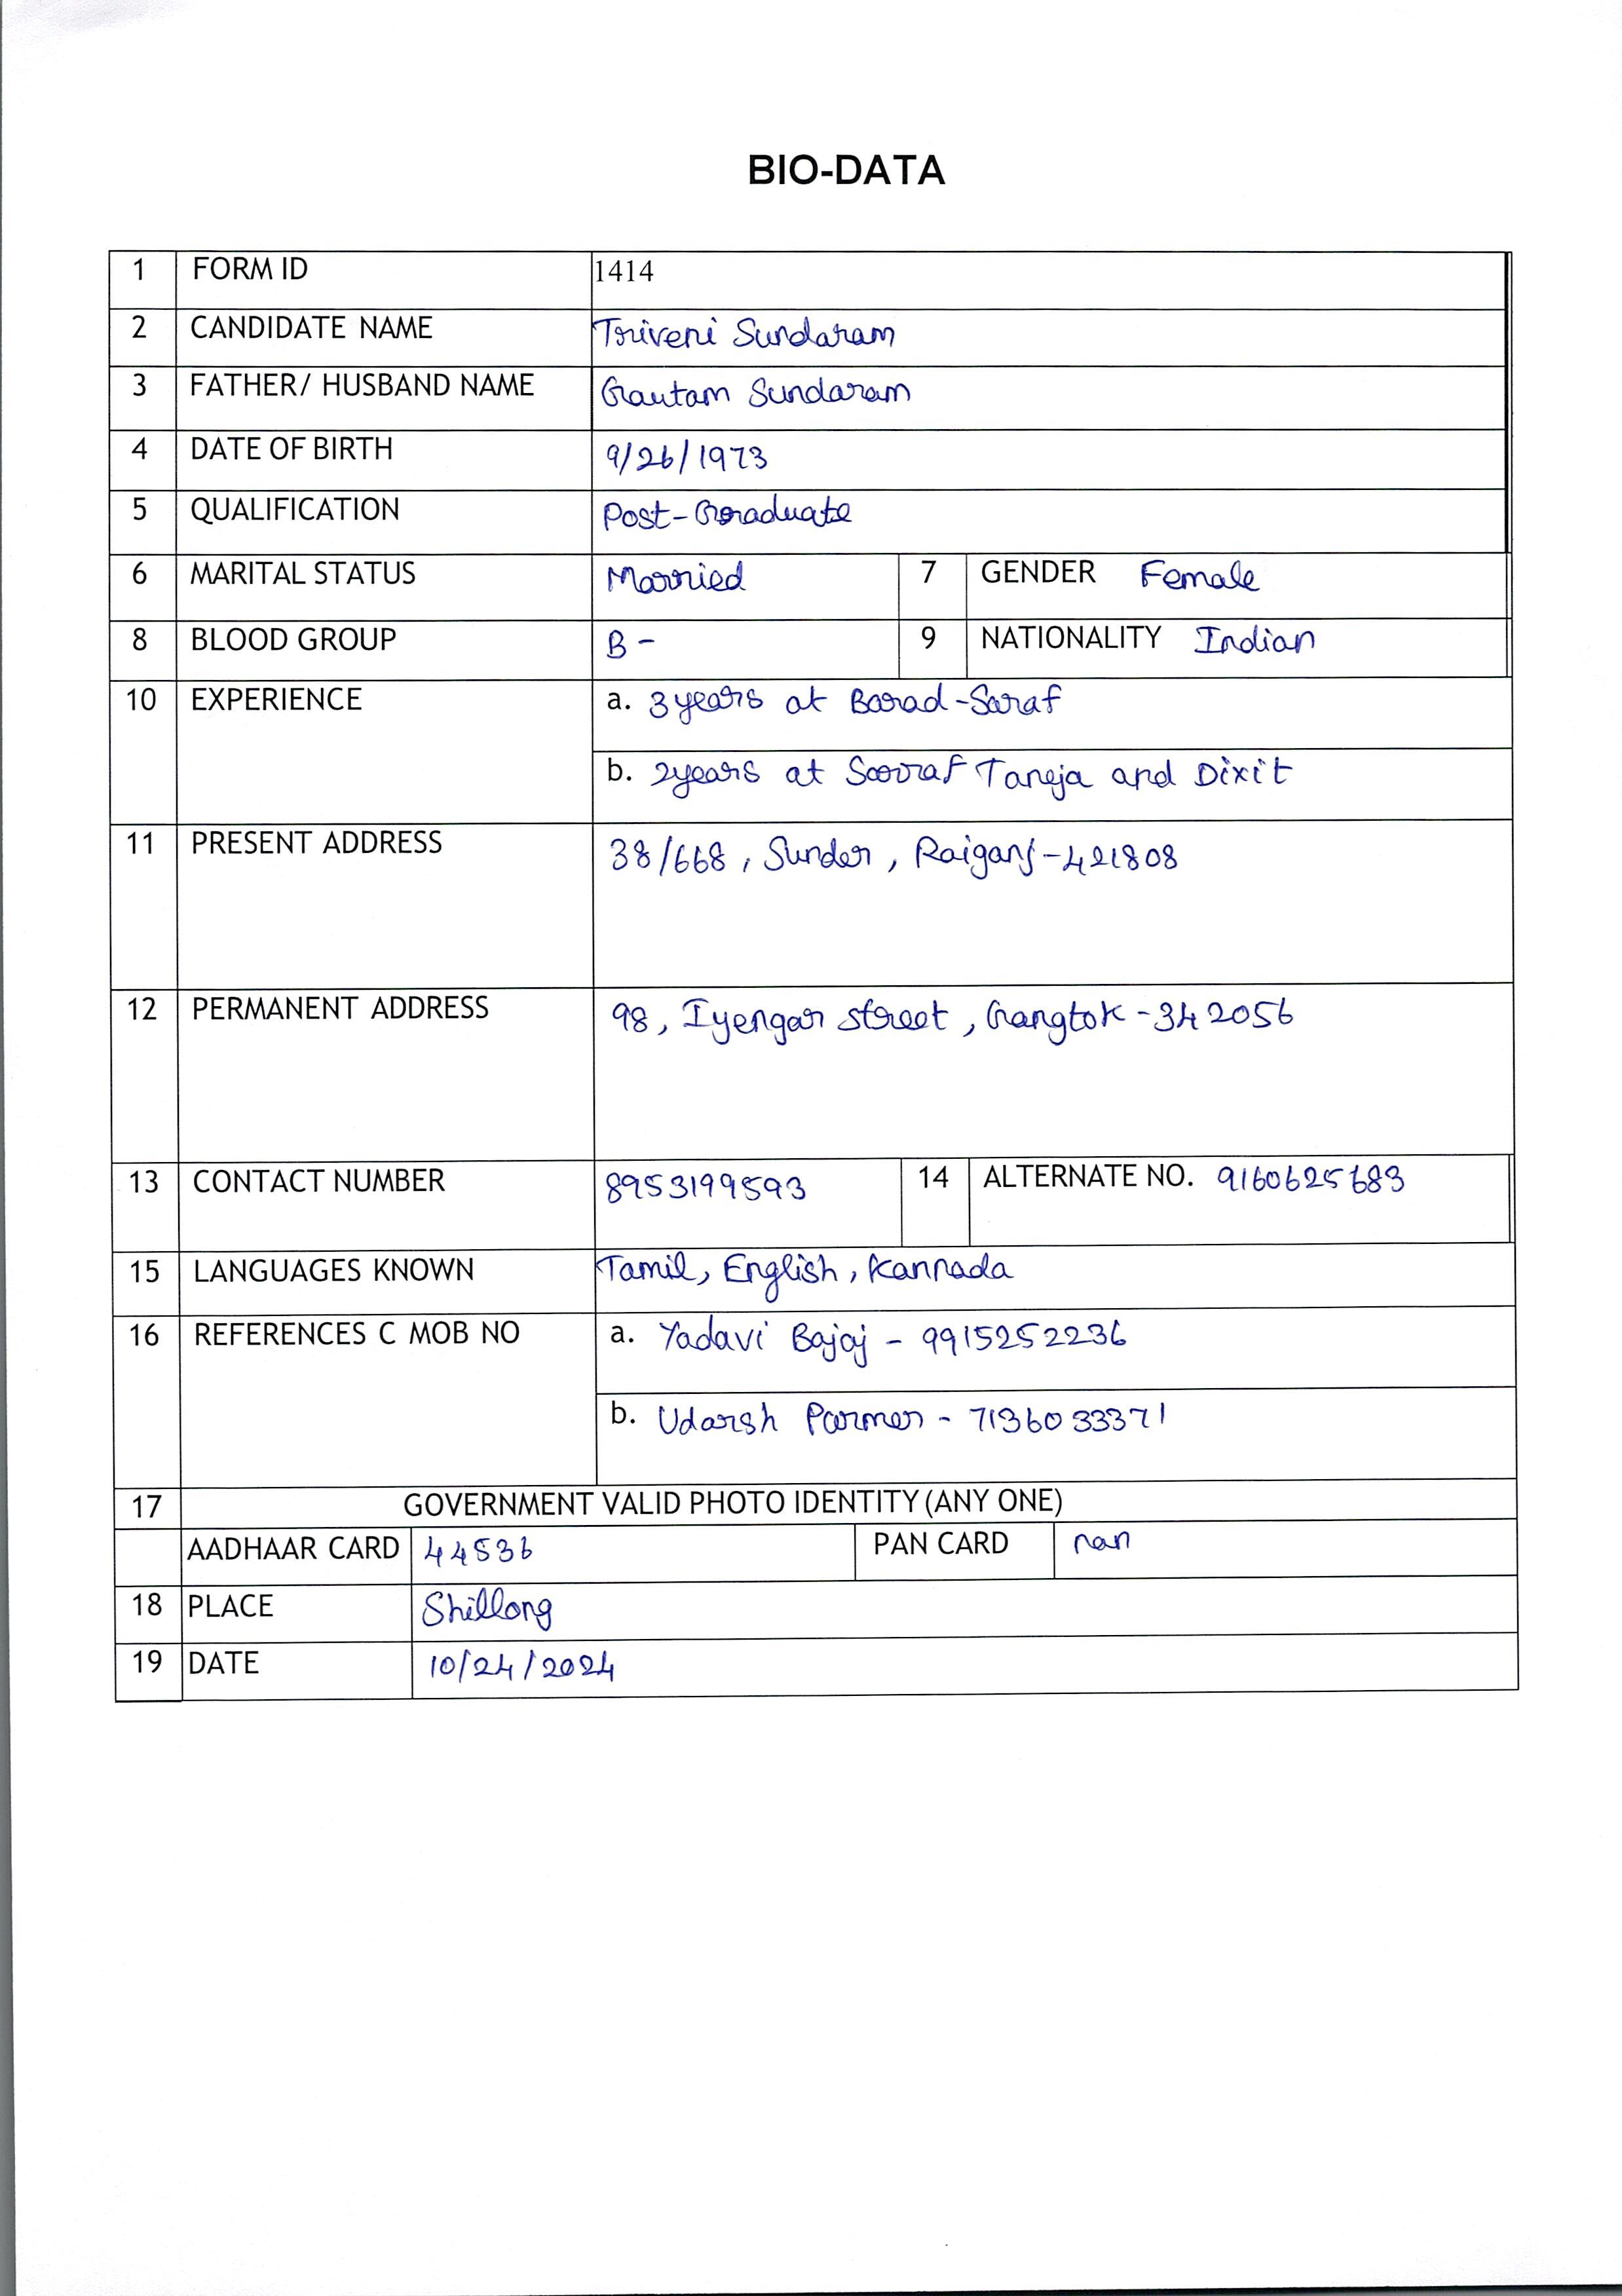 BIO-DATA
1 FORM ID 1414
2 CANDIDATE NAME Triveni Sundaram
3 FATHER/ HUSBAND NAME Gautam Sundaram
4 DATE OF BIRTH 9/26/1973
5 QUALIFICATION Post-Graduate
6 MARITAL STATUS Married 7 GENDER Female
8 BLOOD GROUP B- 9 NATIONALITY Indian
10 EXPERIENCE a. 3 years at Barad-Saraf
b. 2 years at Sarraf Taneja and Dixit
11 PRESENT ADDRESS 38/668, Sunder, Raiganj-421808
12 PERMANENT ADDRESS 98, Iyengar street, Gangtok-342056
13 CONTACT NUMBER 8953199593 14 ALTERNATE NO. 9160625683
15 LANGUAGES KNOWN Tamil, English, Kannada
16 REFERENCES C MOB NO a. Yadavi Bajaj - 9915252236
b. Udarsh Parmer - 7136033371
17 GOVERNMENT VALID PHOTO IDENTITY (ANY ONE)
AADHAAR CARD 44536 PAN CARD nan
18 PLACE Shillong
19 DATE 10/24/2024